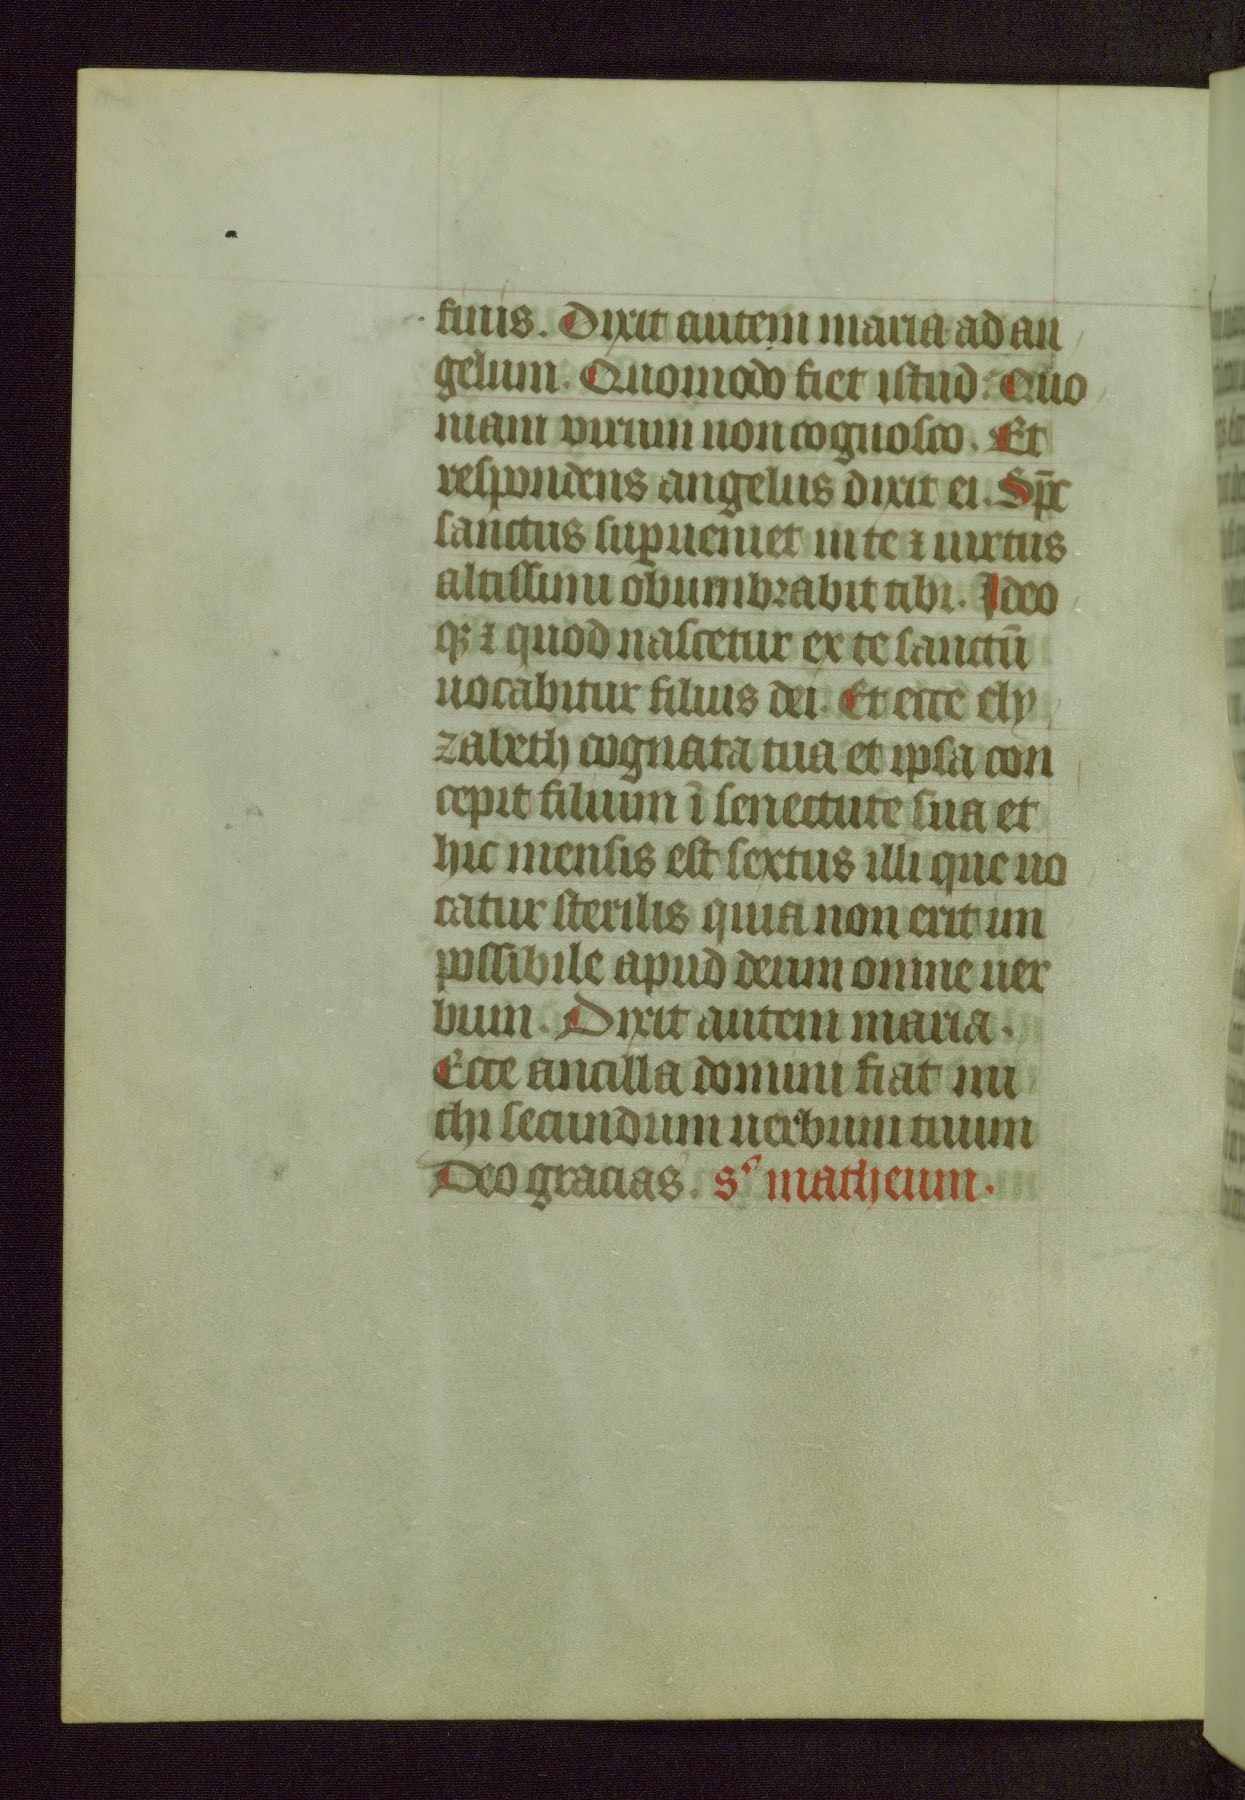 finis. Dixit autem maria ad an
gelum. Quomodo fiet istud: Quo
niam virum non cognosco. Et
respondens angelus dixit ei. Sp̄c
sanctus suꝑueniet in te ⁊ uirtus
altissimi obumbrabit tibi. Ideo
qꝫ ⁊ quod nascetur ex te sanctū
uocabitur filius dei. Et ecce ely
zabeth cognata tua et ipsa con
cepit filium ī senectute sua et
hic mensis est sextus illi que uo
catur sterilis quia non erit im
possibile apud deum omne uer
bum. Dixit autem maria.
Ecce ancilla domini fiat mi
chi secundum uerbum tuum
Deo gracias. sᷤ matheum.